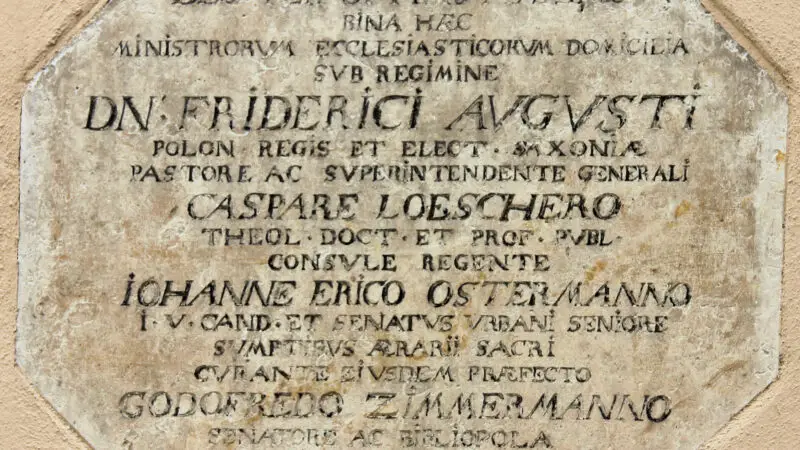 BINA HÆC
MINISTRORVM ECCLESIASTICORVM DOMICILIA
SVB REGIMINE
DN· FRIDERICI AVGVSTI
POLON· REGIS ET ELECT· SAXONIÆ
PASTORE AC SVPERINTENDENTE GENERALI
CASPARE LOESCHERO
THEOL· DOCT· ET PROF· PVBL·
CONSVLE REGENTE
IOHANNE ERICO OSTERMANNO
I· V· CAND· ET SENATVS VRBANI SENIORE
SVMPTIBVS ÆRARII SACRI
CVRANTE EIVSDEM PRÆFECTO
GODOFREDO ZIMMERMANNO
SENATORE AC BIBLIOPOLA